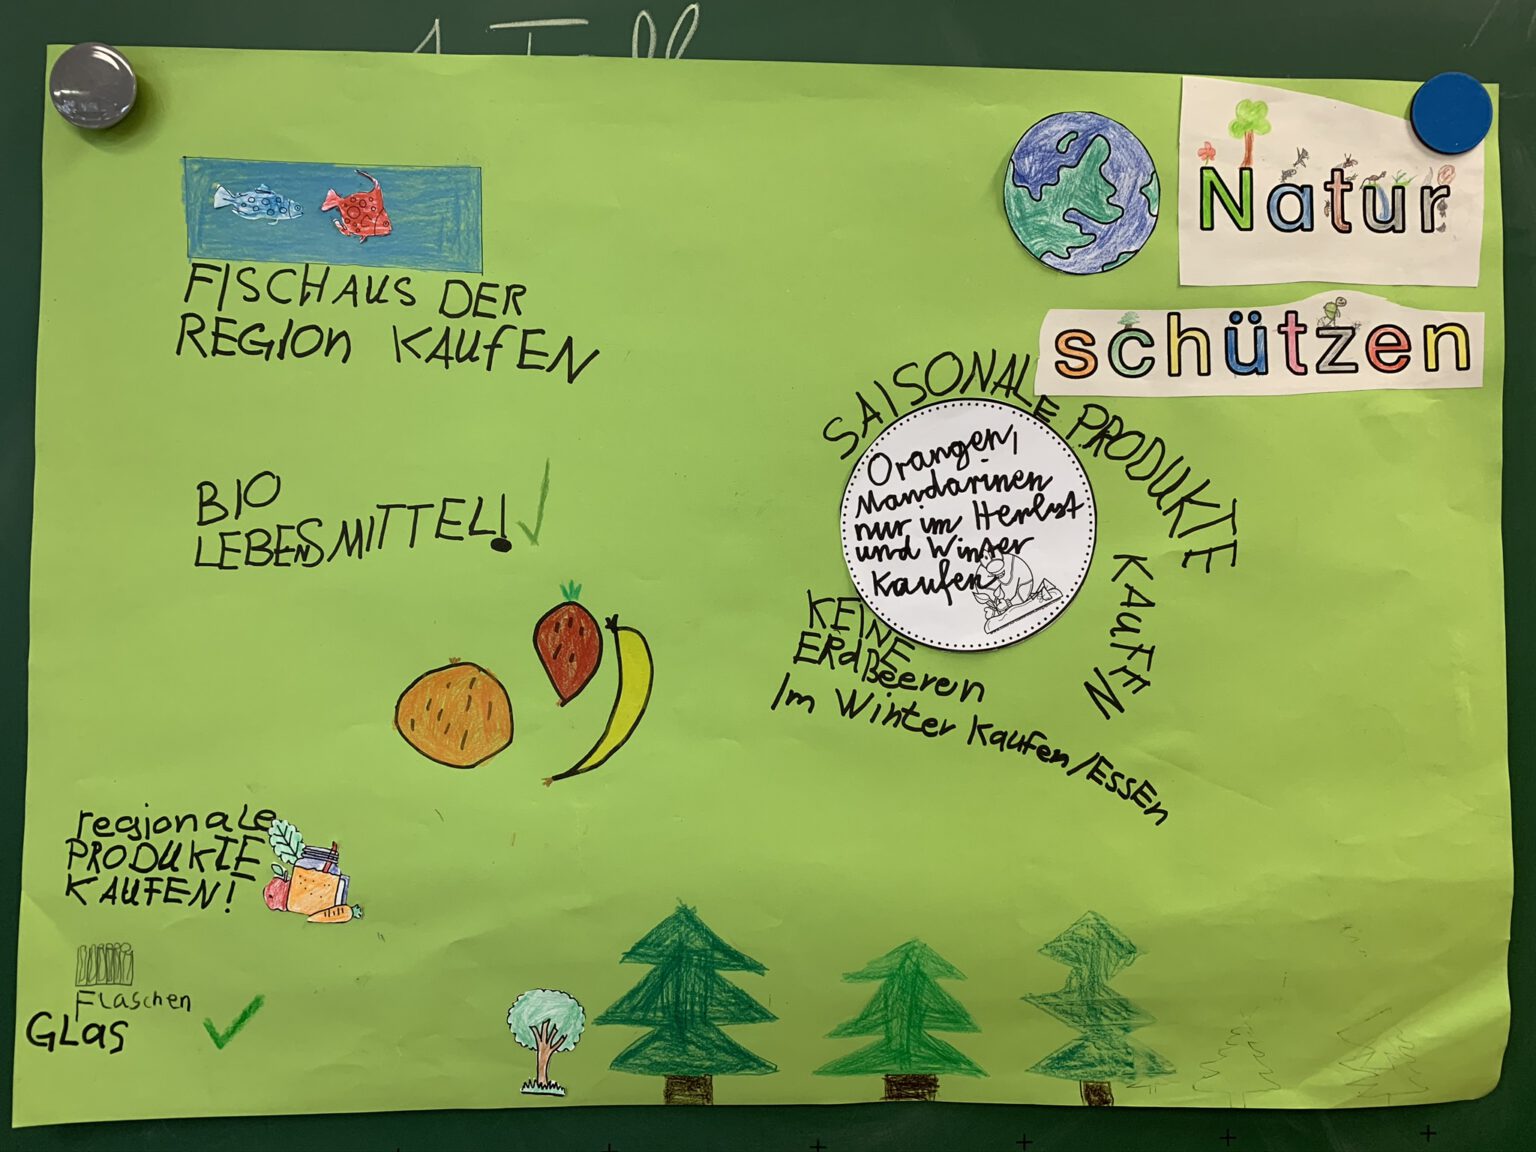 Natur
schützen
FISCH AUS DER
REGION KAUFEN
SAISONALE PRODUKTE KAUFEN
Orangen,
Mandarinen
nur im Herbst
und Winter
kaufen
KEINE
ERdBeeren
Im Winter Kaufen/ESSEn
BIO
LEBENSMITTEL!
regionaLe
PRODUKTE
KAUFEN!
Flaschen
GLas